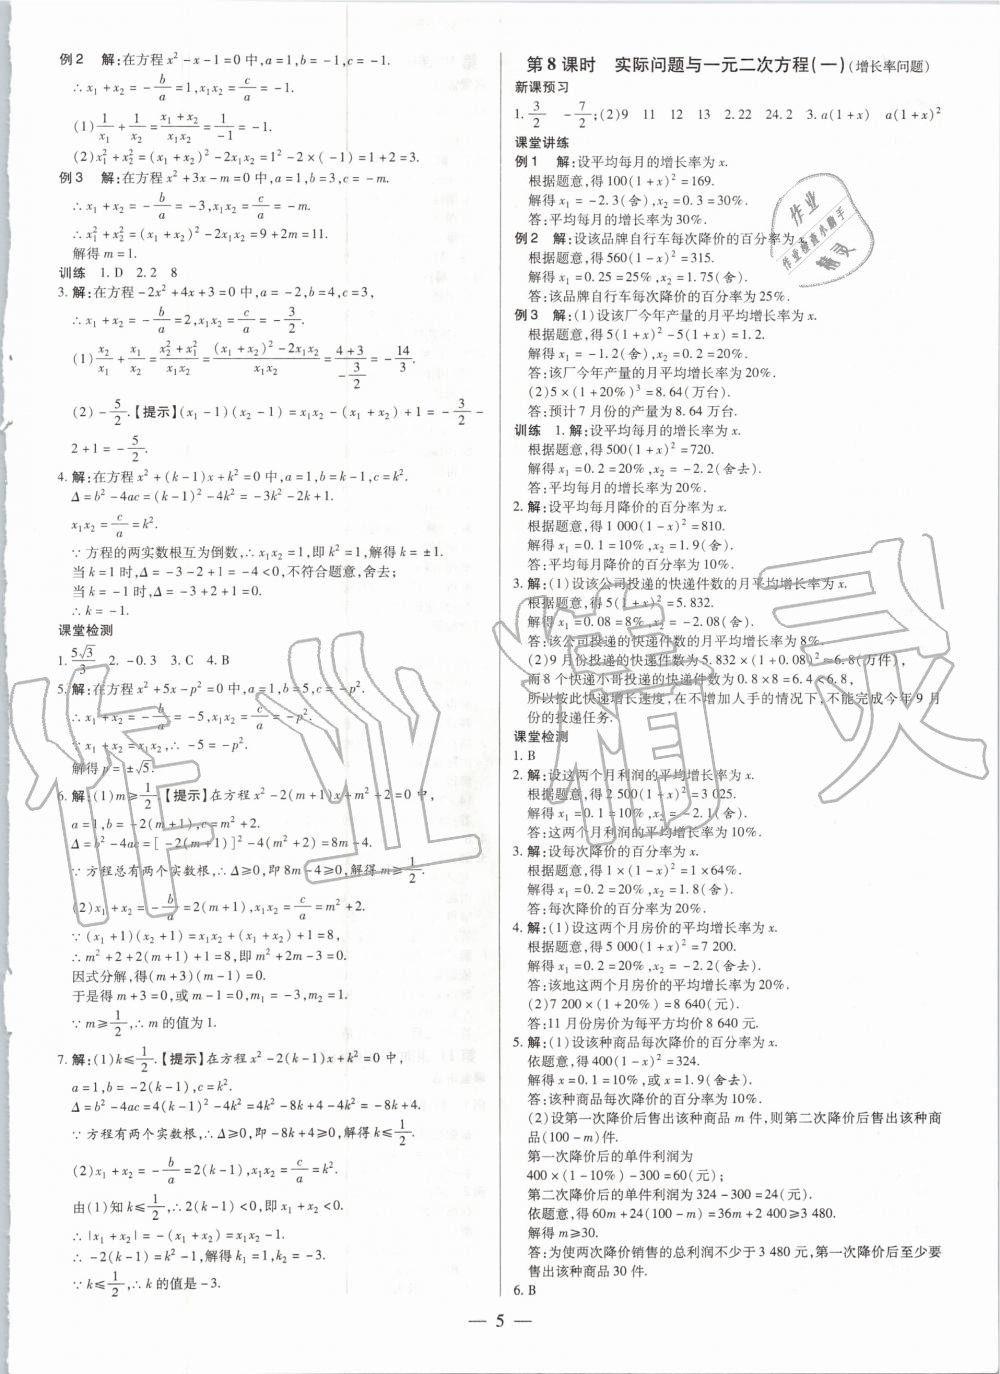 例2　解:在方程x²-x-1=0中,a=1,b=-1,c=-1.
∴x₁+x₂=-b/a=1,x₁x₂=c/a=-1.
(1)1/x₁+1/x₂=(x₁+x₂)/(x₁x₂)=1/(-1)=-1.
(2)x₁²+x₂²=(x₁+x₂)²-2x₁x₂=1²-2×(-1)=1+2=3.
例3　解:在方程x²+3x-m=0中,a=1,b=3,c=-m.
∴x₁+x₂=-b/a=-3,x₁x₂=c/a=-m.
∴x₁²+x₂²=(x₁+x₂)²-2x₁x₂=9+2m=11.
解得m=1.
训练　1.D　2.2　8
3.解:在方程-2x²+4x+3=0中,a=-2,b=4,c=3,
∴x₁+x₂=-b/a=2,x₁x₂=c/a=-3/2.
(1)x₂/x₁+x₁/x₂=(x₂²+x₁²)/(x₁x₂)=((x₁+x₂)²-2x₁x₂)/(x₁x₂)=(4+3)/(-3/2)=-14/3.
(2)-5/2.【提示】(x₁-1)(x₂-1)=x₁x₂-(x₁+x₂)+1=-3/2-
2+1=-5/2.
4.解:在方程x²+(k-1)x+k²=0中,a=1,b=k-1,c=k².
Δ=b²-4ac=(k-1)²-4k²=-3k²-2k+1.
x₁x₂=c/a=k².
∵方程的两实数根互为倒数,∴x₁x₂=1,即k²=1,解得k=±1.
当k=1时,Δ=-3-2+1=-4<0,不符合题意,舍去;
当k=-1时,Δ=-3+2+1=0.
∴k=-1.
课堂检测
1.5√3/3　2.-0.3　3.C　4.B
5.解:在方程x²+5x-p²=0中,a=1,b=5,c=-p².
∴x₁+x₂=-b/a=-5,x₁x₂=c/a=-p².
∵x₁+x₂=x₁x₂,∴-5=-p².
解得p=±√5.
6.解:(1)m≥1/2.【提示】在方程x²-2(m+1)x+m²+2=0中,
a=1,b=-2(m+1),c=m²+2.
Δ=b²-4ac=[-2(m+1)]²-4(m²+2)=8m-4.
∵方程总有两个实数根,∴Δ≥0,即8m-4≥0,解得m≥1/2.
(2)x₁+x₂=-b/a=2(m+1),x₁x₂=c/a=m²+2.
∵(x₁+1)(x₂+1)=x₁x₂+(x₁+x₂)+1=8,
∴m²+2+2(m+1)+1=8,即m²+2m-3=0.
因式分解,得(m+3)(m-1)=0.
于是得m+3=0,或m-1=0,m₁=-3,m₂=1.
∵m≥1/2,∴m的值为1.
7.解:(1)k≤1/2.【提示】在方程x²-2(k-1)x+k²=0中,
a=1,b=-2(k-1),c=k².
Δ=b²-4ac=4(k-1)²-4k²=4k²-8k+4-4k²=-8k+4.
∵方程有两个实数根,∴Δ≥0,即-8k+4≥0,解得k≤1/2.
(2)x₁+x₂=-b/a=2(k-1),x₁x₂=c/a=k².
由(1)知k≤1/2,∴2(k-1)<0,即x₁+x₂<0.
∴|x₁+x₂|=-(x₁+x₂)=x₁x₂-1.
∴-2(k-1)=k²-1,解得k₁=1,k₂=-3.
∵k≤1/2,∴k的值是-3.
第8课时　实际问题与一元二次方程(一)(增长率问题)
新课预习
1.3/2　-7/2;(2)9　11　12　13　2.22　24.2　3.a(1+x)　a(1+x)²
课堂讲练
例1　解:设平均每月的增长率为x.
根据题意,得100(1+x)²=169.
解得x₁=-2.3(舍),x₂=0.3=30%.
答:平均每月的增长率为30%.
例2　解:设该品牌自行车每次降价的百分率为x.
根据题意,得560(1-x)²=315.
解得x₁=0.25=25%,x₂=1.75(舍).
答:该品牌自行车每次降价的百分率为25%.
例3　解:(1)设该厂今年产量的月平均增长率为x.
根据题意,得5(1+x)²-5(1+x)=1.2.
解得x₁=-1.2(舍),x₂=0.2=20%.
答:该厂今年产量的月平均增长率为20%.
(2)5×(1+20%)³=8.64(万台).
答:预计7月份的产量为8.64万台.
训练　1.解:设平均每月的增长率为x.
根据题意,得500(1+x)²=720.
解得x₁=0.2=20%,x₂=-2.2(舍去).
答:平均每月的增长率为20%.
2.解:设平均每月降价的百分率为x.
根据题意,得1 000(1-x)²=810.
解得x₁=0.1=10%,x₂=1.9(舍).
答:平均每月降价的百分率为10%.
3.解:(1)设该公司投递的快递件数的月平均增长率为x.
根据题意,得5(1+x)²=5.832.
解得x₁=0.08=8%,x₂=-2.08(舍).
答:该公司投递的快递件数的月平均增长率为8%.
(2)9月份投递的快递件数为5.832×(1+0.08)²≈6.8(万件),
而8个快递小哥投递的快递件数为0.8×8=6.4<6.8,
所以按此快递增长速度,在不增加人手的情况下,不能完成今年9月
份的投递任务.
课堂检测
1.B
2.解:设这两个月利润的平均增长率为x.
根据题意,得2 500(1+x)²=3 025.
解得x₁=0.1=10%,x₂=-2.1(舍).
答:这两个月利润的平均增长率为10%.
3.解:设每次降价的百分率为x.
根据题意,得1×(1-x)²=1×64%.
解得x₁=0.2=20%,x₂=1.8(舍).
答:每次降价的百分率为20%.
4.解:(1)设这两个月房价的平均增长率为x.
根据题意,得5 000(1+x)²=7 200.
解得x₁=0.2=20%,x₂=-2.2(舍去).
答:该地这两个月房价的平均增长率为20%.
(2)7 200×(1+20%)=8 640(元).
答:11月份房价为每平方均价8 640元.
5.解:(1)设该种商品每次降价的百分率为x.
依题意,得400(1-x)²=324.
解得x=0.1=10%,或x=1.9(舍去).
答:该种商品每次降价的百分率为10%.
(2)设第一次降价后售出该种商品m件,则第二次降价后售出该种商
品(100-m)件.
第一次降价后的单件利润为
400×(1-10%)-300=60(元);
第二次降价后的单件利润为324-300=24(元).
依题意,得60m+24(100-m)=36m+2 400≥3 480.
解得m≥30.
答:为使两次降价销售的总利润不少于3 480元,第一次降价后至少要
售出该种商品30件.
6.B
— 5 —
作业
作业检查小助手
精灵
作业精灵